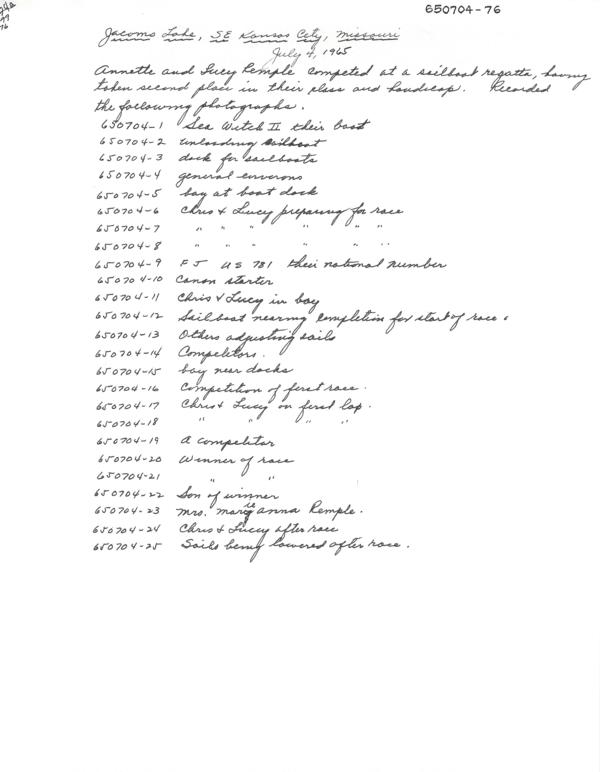 650704-76
Jacoms Lake, SE Kansas City, Missouri
July 4, 1965
Annette and Lucy Remple competed at a sailboat regatta, having
taken second place in their class and handicap. Recorded
the following photographs.
650704-1 Sea Witch II their boat
650704-2 unloading sailboat
650704-3 dock for sailboats
650704-4 general environs
650704-5 bay at boat dock
650704-6 Chris & Lucy preparing for race
650704-7 " " " " " "
650704-8 " " " " " "
650704-9 FJ US 781 their national number
650704-10 Canon starter
650704-11 Chris & Lucy in bay
650704-12 Sailboat nearing completion for start of race.
650704-13 Others adjusting sails
650704-14 Competitors.
650704-15 bay near docks
650704-16 Competition of first race.
650704-17 Chris & Lucy on first lap.
650704-18 " " " " "
650704-19 A competitor
650704-20 Winner of race
650704-21 " "
650704-22 Son of winner
650704-23 Mrs. Marie anna Remple.
650704-24 Chris & Lucy after race
650704-25 Sails being lowered after race.